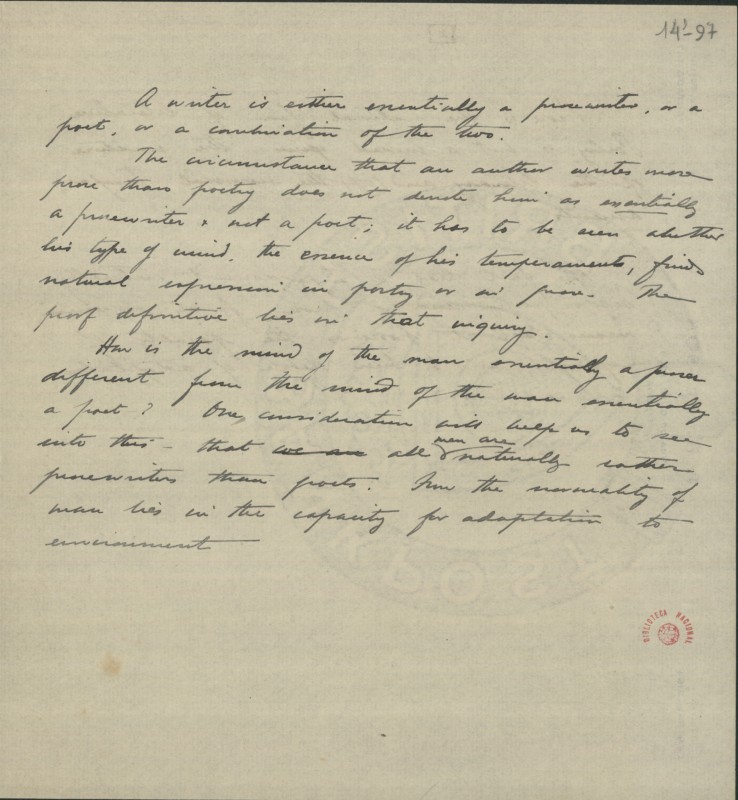 14³-97
A writer is either essentially a prosewriter, or a
poet, or a combination of the two.
The circumstance that an author writes more
prose than poetry does not denote him as essentially
a prosewriter & not a poet; it has to be seen whether
his type of mind, the essence of his temperament, finds
natural expression in poetry or in prose. The
proof definitive lies in that inquiry.
How is the mind of the man essentially a proser
different from the mind of the man essentially
a poet? One consideration will help us to see
into this – that we are all men are naturally rather
prosewriters than poets. For the normality of
man lies in the capacity for adaptation to
environment
BIBLIOTECA NACIONAL